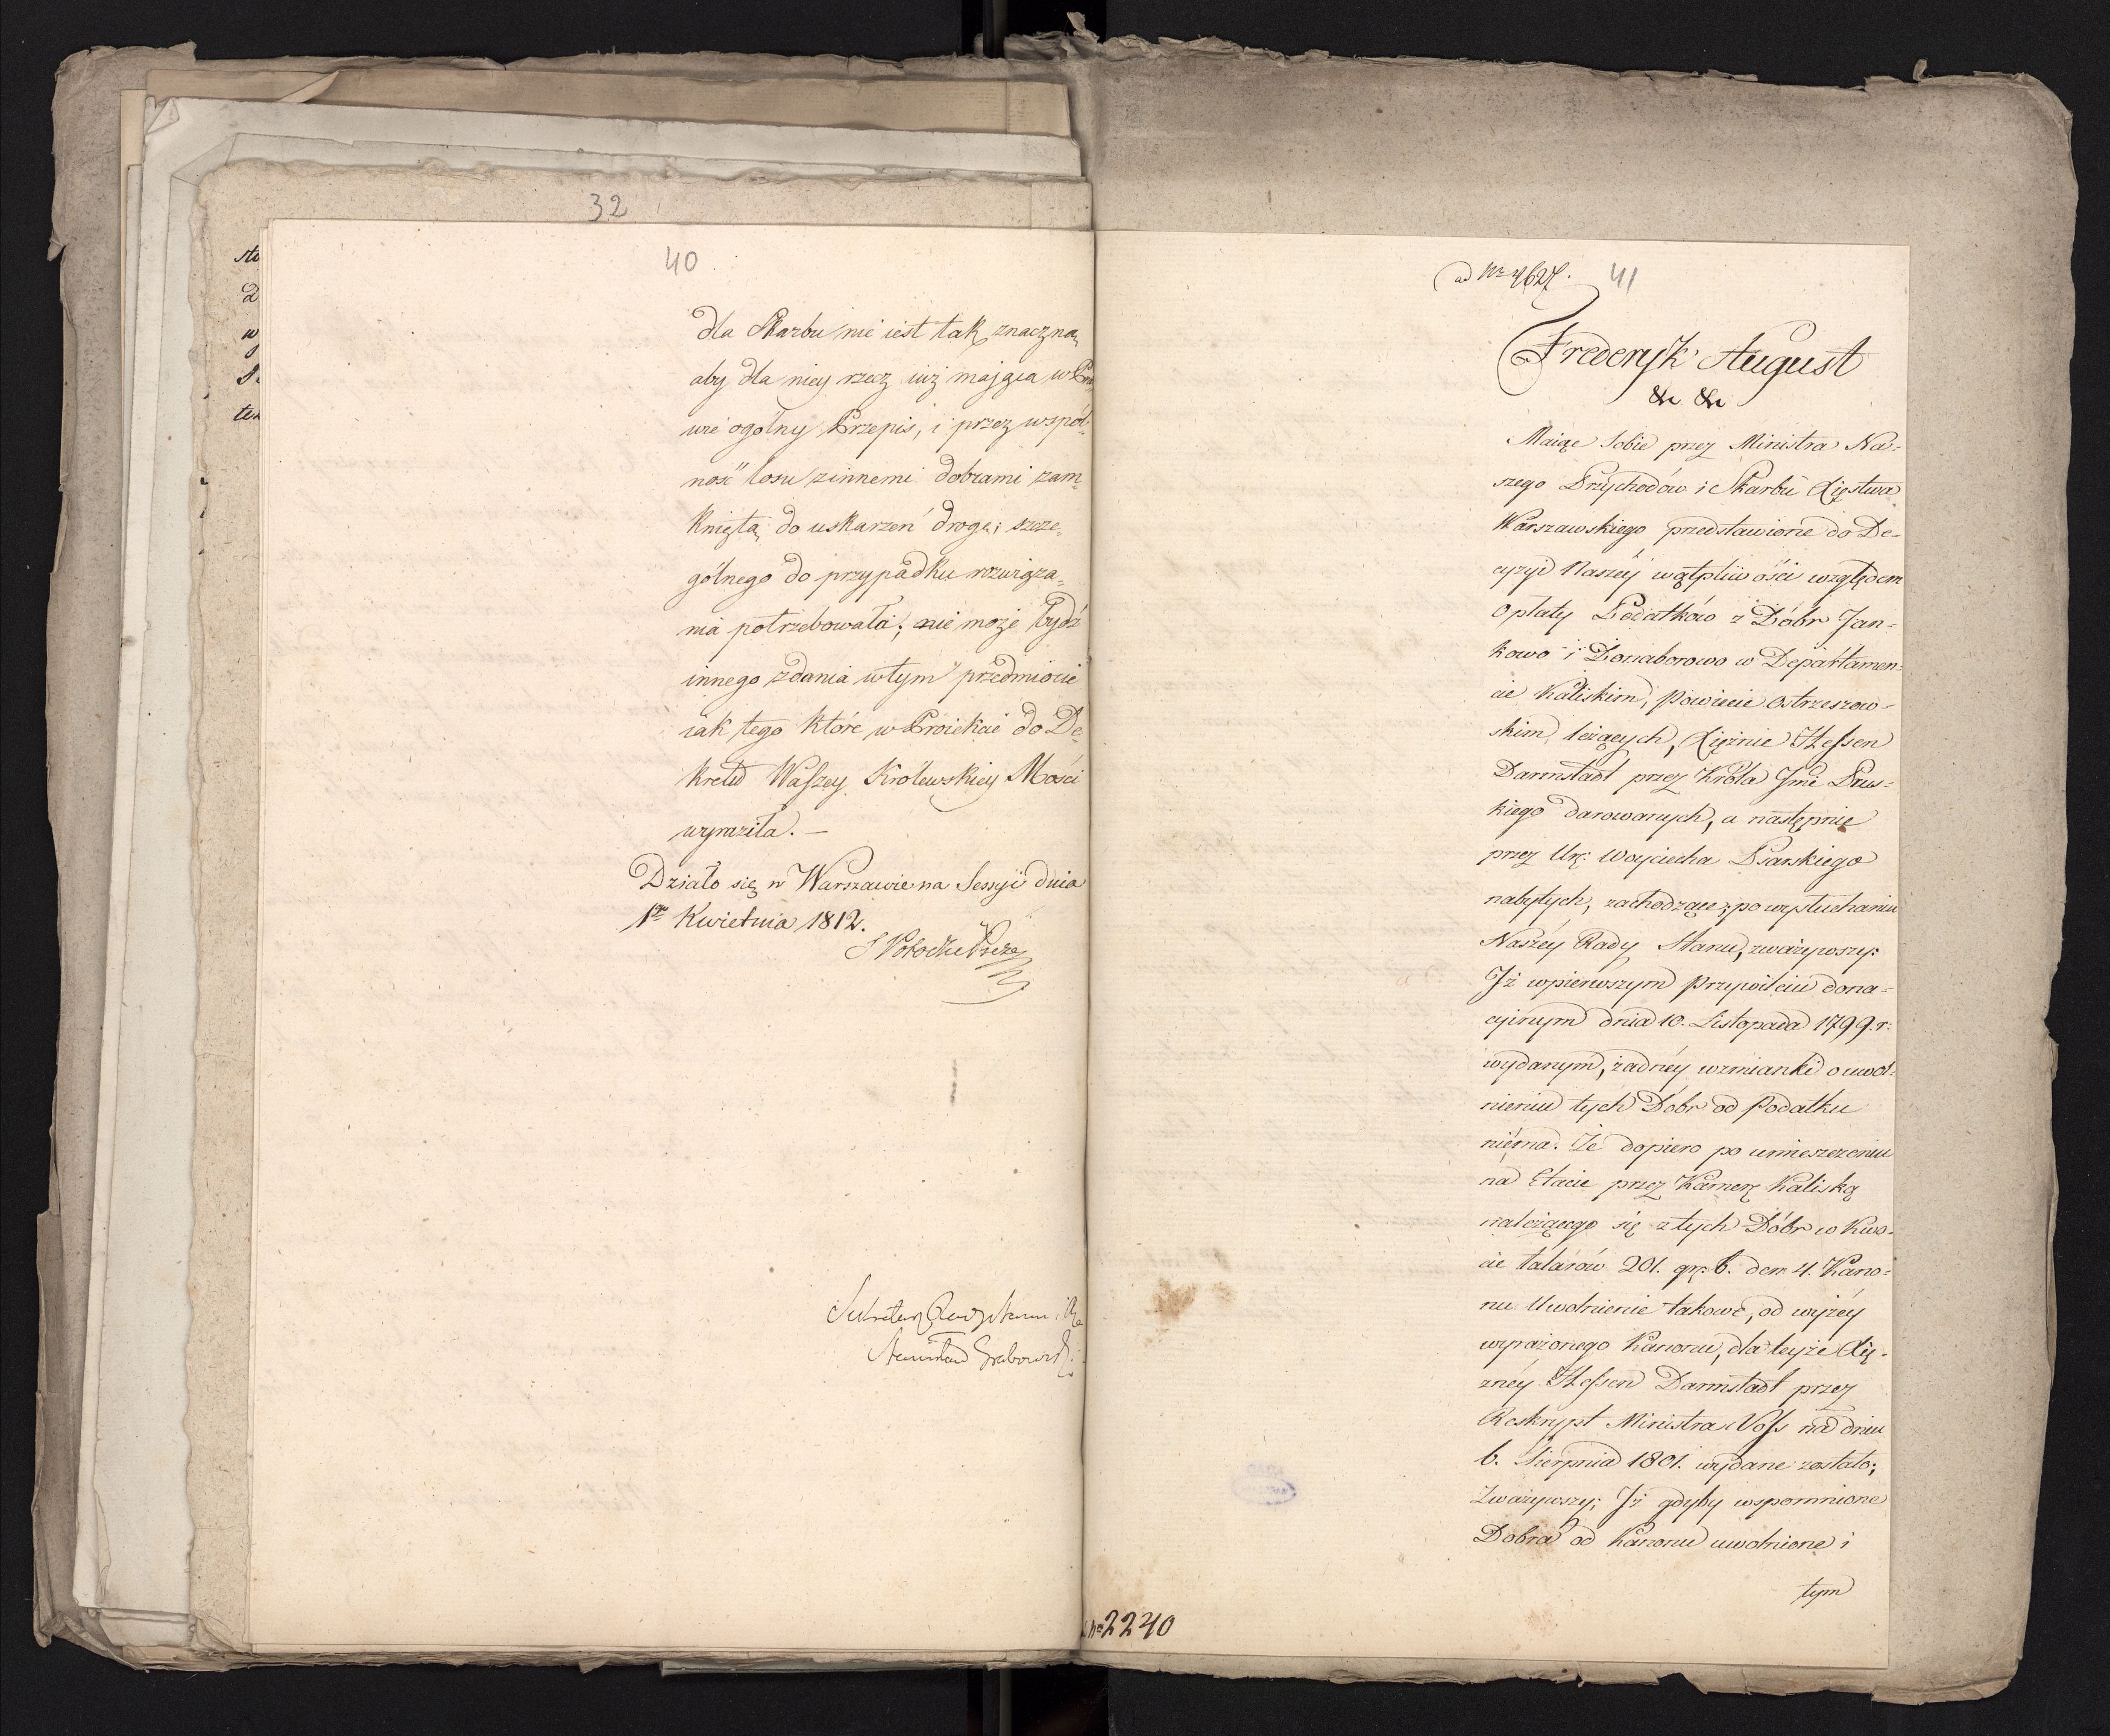 32
40
dla Skarbu nie iest tak znaczną
aby dla niey rzecz iuż maiąca w Pra
wie ogólny Przepis, i przez wspól-
ność losu z innemi dobrami zam-
kniętą do uskarżeń drogę; szcze-
gólnego do przypadku rozwiąza-
nia potrzebowała; nie może bydź
innego zdania w tym przedmiocie
iak tego które w Proiekcie do De-
kretu Waszey Królewskiey Mości
wyraziła. —
Działo się w Warszawie na Sessyi dnia
1go Kwietnia 1812.
S Potocki Prezes
Sekretarz Rady Stanu i
Stanisław Grabowski
sto
D
w
S
ten
ad Nr 4627. 41
Frederyk August
&c &c
Maiąc sobie przez Ministra Na-
szego Przychodów i Skarbu Xięstwa
Warszawskiego przedstawione do De-
cyzyi Naszéy wątpliwości względem
opłaty Podatków z Dóbr Jan-
kowo i Donaborowo w Departamen-
cie Kaliskim, Powiecie Ostrzeszow-
skim leżących, Xiężnie Hessen
Darmstadt przez Króla Jmć Prus-
kiego darowanych, a następnie
przez Ur: Woyciecha Psarskiego
nabytych, zachodzące; po wysłuchaniu
Naszéy Rady Stanu, zważywszy:
Iż w pierwszym Przywileiu dona-
cyinym dnia 10. Listopada 1799. r:
wydanym, żadnéy wzmianki o uwol-
nieniu tych Dóbr od Podatku
niéma. Że dopiero po umieszczeniu
na Etacie przez Kamerę Kaliską
należącego się z tych Dóbr w Kwo-
cie talarów 201. gr. 6. den 4. Kano-
nu Uwolnienie takowe, od wyżéy
wyrażonego Kanonu, dla teyże Xię-
żnéy Hessen Darmstadt przez
Reskrypt Ministra Voss na dniu
6. Sierpnia 1801. wydane zostało;
Zważywszy; Iż gdyby wspomnione
Dobra od Kanonu uwolnione i
tym
Nro 2240